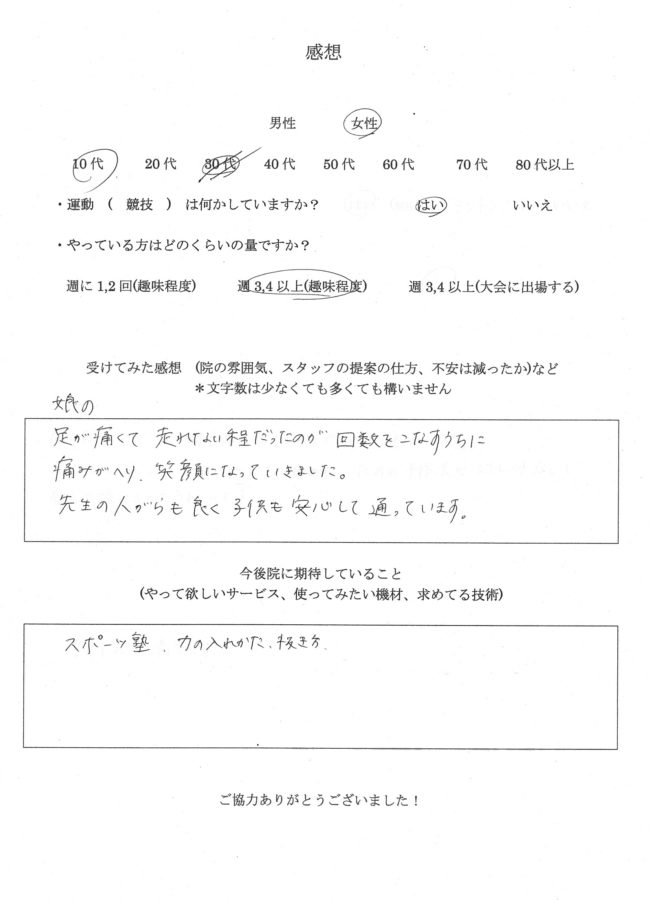 感想
男性 女性
10代 20代 30代 40代 50代 60代 70代 80代以上
・運動 ( 競技 ) は何かしていますか? はい いいえ
・やっている方はどのくらいの量ですか?
週に1,2回(趣味程度) 週3,4以上(趣味程度) 週3,4以上(大会に出場する)
受けてみた感想 (院の雰囲気、スタッフの提案の仕方、不安は減ったか)など
＊文字数は少なくても多くても構いません
娘の
足が痛くて 走れない程だったのが 回数をこなすうちに
痛みがへり、笑顔になっていきました。
先生の人がらも良く子供も安心して通っています。
今後院に期待していること
(やって欲しいサービス、使ってみたい機材、求めてる技術)
スポーツ塾、力の入れかた、抜き方
ご協力ありがとうございました！